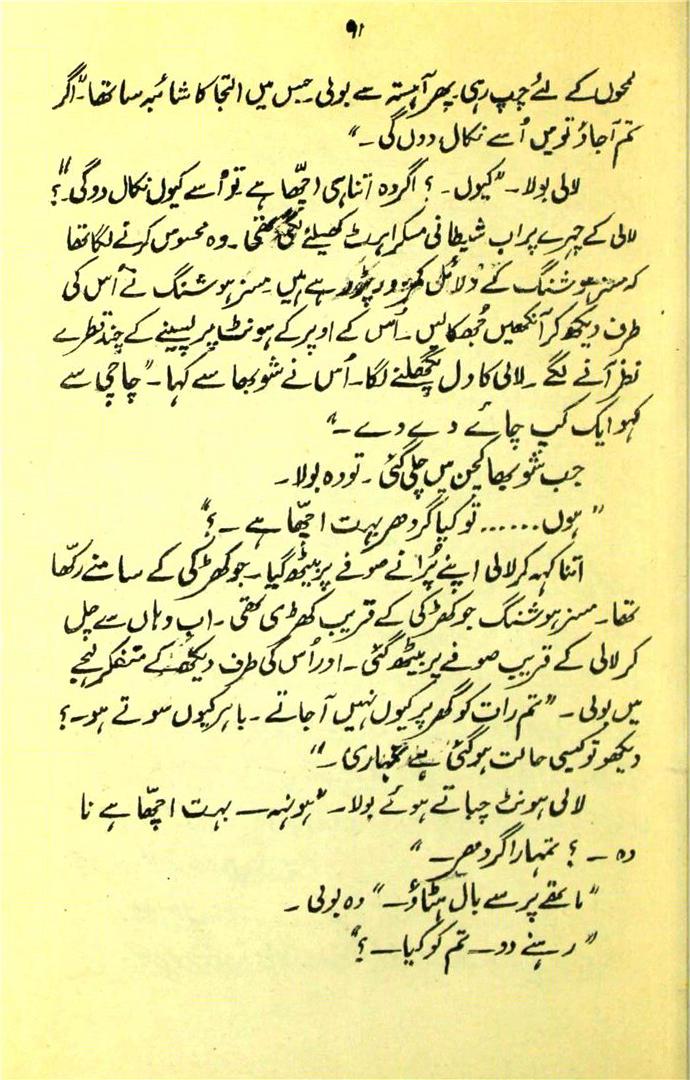 ۹۱
لمحوں کے لئے چپ رہی۔ پھر آہستہ سے بولی۔ جس میں التجا کا شائبہ سا تھا۔ "اگر
تم آجاؤ تو میں اُسے نکال دوں گی۔"
لالی بولا۔ "کیوں۔؟ اگر وہ اتنا ہی اچھا ہے تو اُسے کیوں نکال دو گی۔؟"
لالی کے چہرے پر اب شیطانی مسکراہٹ کھیلنے لگی تھی۔ وہ محسوس کرنے لگا تھا
کہ مسز ہوشنگ کے دلائل کمزور پڑ رہے ہیں۔ مسز ہوشنگ نے اُس کی
طرف دیکھ کر آنکھیں جُھکا لیں۔ اُس کے اوپر کے ہونٹ پر پسینے کے چند قطرے
نظر آنے لگے۔ لالی کا دل پگھلنے لگا۔ اُس نے شوبھا سے کہا۔ "چاچی سے
کہو ایک کپ چائے دے دے۔"
جب شوبھا کچن میں چلی گئی۔ تو وہ بولا۔
"ہوں...... تو کیا گردھر بہت اچھا ہے۔؟"
اتنا کہہ کر لالی اپنے پُرانے صوفے پر بیٹھ گیا۔ جو کھڑکی کے سامنے رکھا
تھا۔ مسز ہوشنگ جو کھڑکی کے قریب کھڑی تھی۔ اب وہاں سے چل
کر لالی کے قریب صوفے پر بیٹھ گئی۔ اور اُس کی طرف دیکھ کے متفکر لہجے
میں بولی۔ "تم رات کو گھر پر کیوں نہیں آجاتے۔ باہر کیوں سوتے ہو۔؟
دیکھو تو کیسی حالت ہو گئی ہے تمہاری۔"
لالی ہونٹ چباتے ہوئے بولا۔ "ہونہہ۔ بہت اچھا ہے نا
وہ۔؟ تمہارا گردھر۔"
"ماتھے پر سے بال ہٹاؤ۔" وہ بولی۔
"رہنے دو۔ تم کو کیا۔؟"